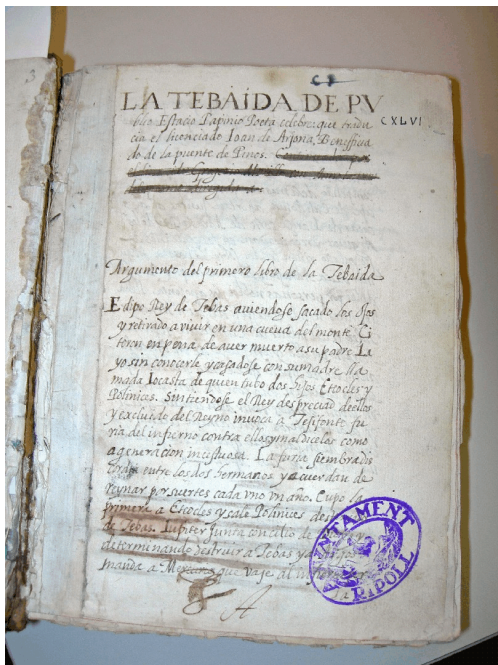 3
CXLVI
LA TEBAIDA DE PV
blio Estacio Papinio Poeta celebre que tradu
cia el licenciado Ioan de Arjona, Beneficia
do de la puente de Pinos.
Argumento del primero libro de la Tebaida
Edipo Rey de Tebas auiendose sacado los ojos
y retirado a viuir en una cueua del monte Ci
teron en pena de auer muerto a su padre La
yo sin conocerle y casadose con su madre lla
mada Iocasta de quien tubo dos hijos Etocles y
Polinices. Sintiendose el Rey despreciad dellos
y excluido del Reyno inuoca a Tesifonte fu
ria del infierno contra ellos y maldicelos como
a generacion incestuosa. La furia siembra dis
cordia entre los dos hermanos y acuerdan de
reynar por suertes cada vno vn año. Cupo la
primera a Etocles y sale Polinices
de Tebas. Iupiter junta concilio
determinando destruir a Tebas y
manda a Mercurio que vaje al
A
AJUNTAMENT
RIPOLL